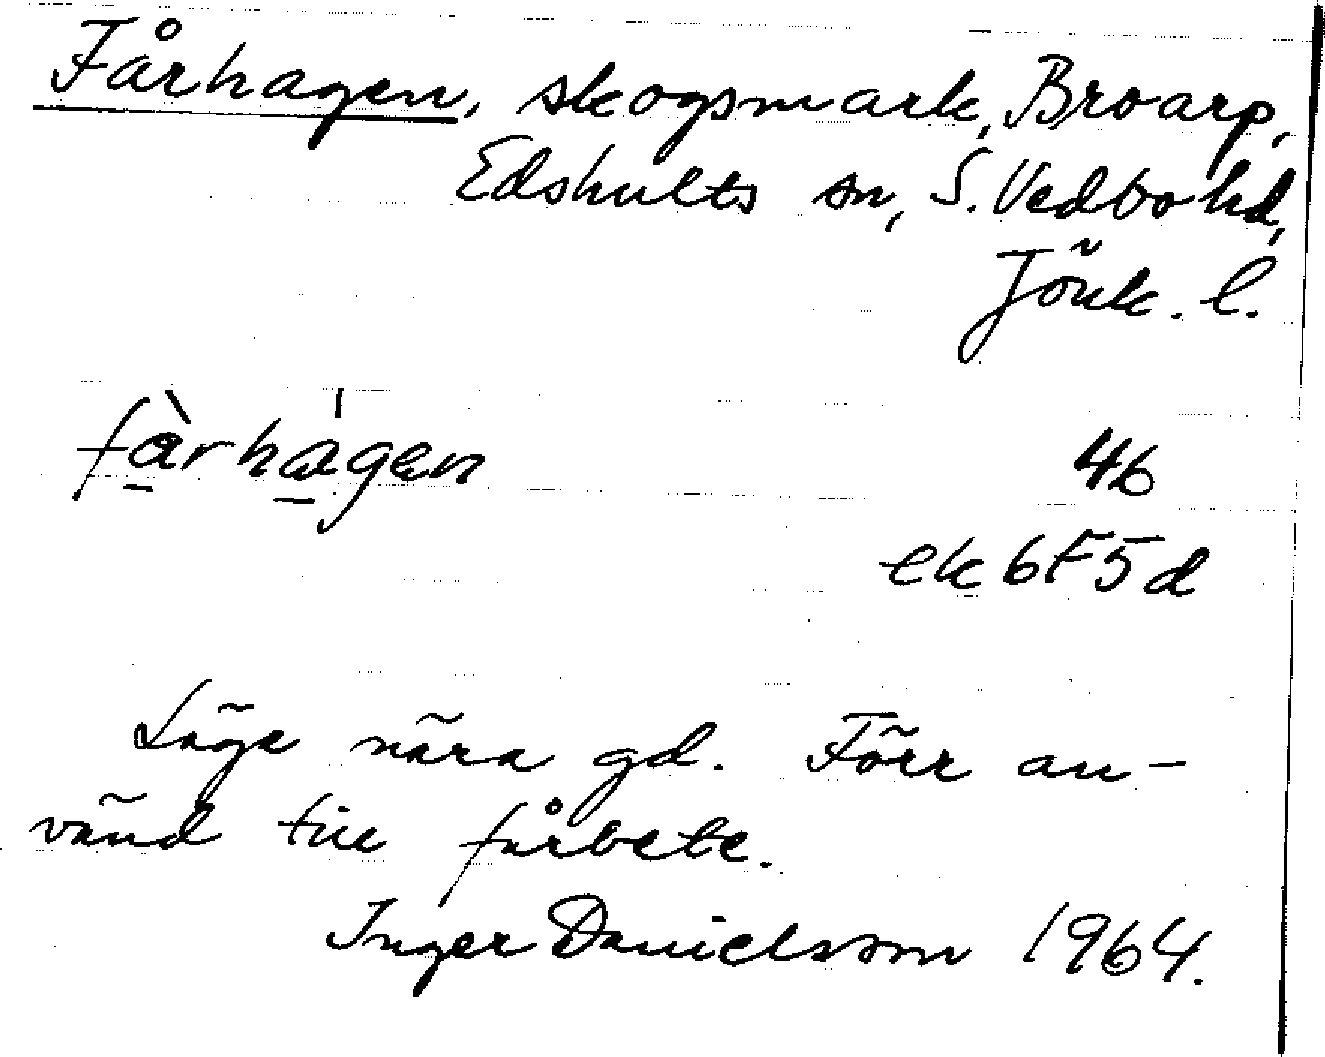 Fårhagen, skogsmark, Broarp,
Edshults sn, S. Vedbo hd,
Jönk. l.
fàrhágen 46
ek 6F5d
Läge nära gd. Förr an-
vänd till fårbete.
Inger Danielsson 1964.